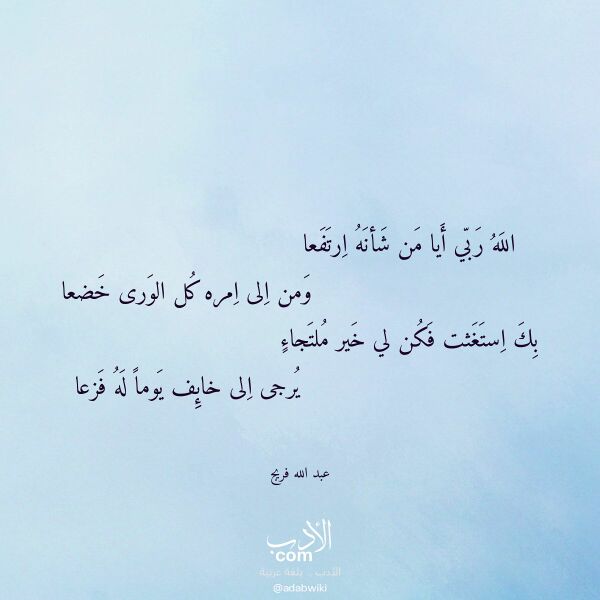 اللَهُ رَبّي أَيا مَن شَأنَهُ اِرتَفَعا
وَمن اِلى اِمره كُل الوَرى خَضعا
بِكَ اِستَغَثت فَكُن لي خَير مُلتَجاءٍ
يُرجى اِلى خايِف يَوماً لَهُ فَزعا
عبد الله فريج
الأدب
com
الأدب .. بلغة عربية
@adabwiki